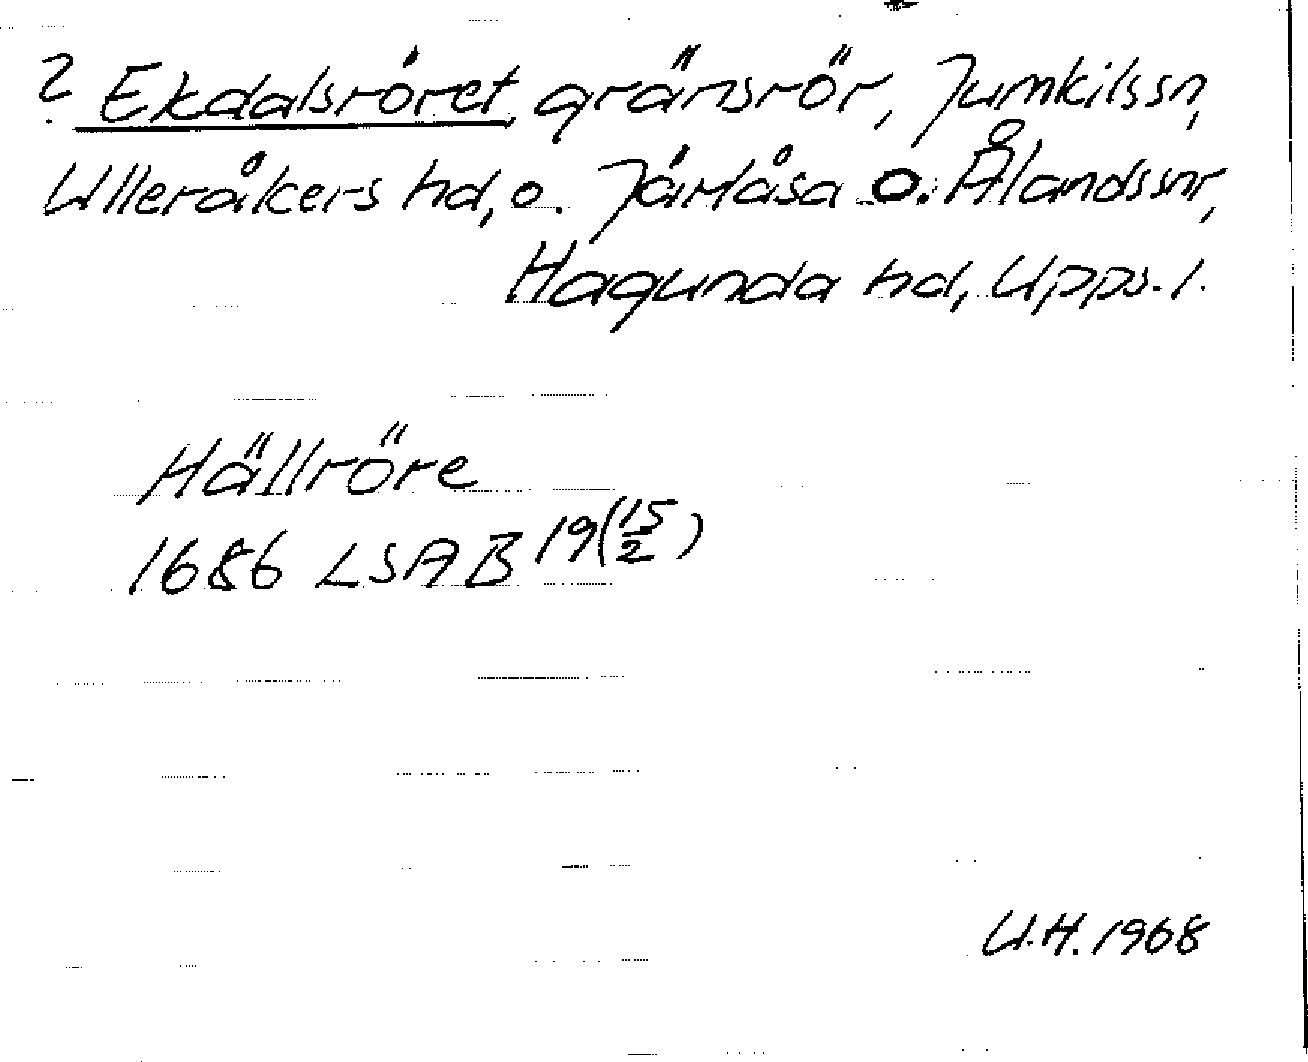 ? Ekdalsröret, gränsrör, Jumkils sn,
Ulleråkers hd, o. Järlåsa o. Ålands snr,
Hagunda hd, Upps. l.
Hällröre
1686 LSA B 19 (15/2)
U.H. 1968